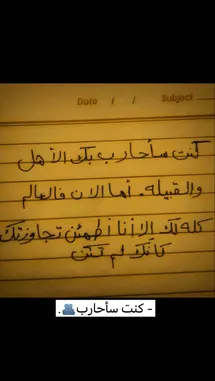 Date / / Subject
كنت سأحارب بك الأهل
والقبيلة. أما الان فالعالم
كله لك الا أنا أطمئن تجاوزتك
كانك لم تكن
- كنت سأحارب👥.